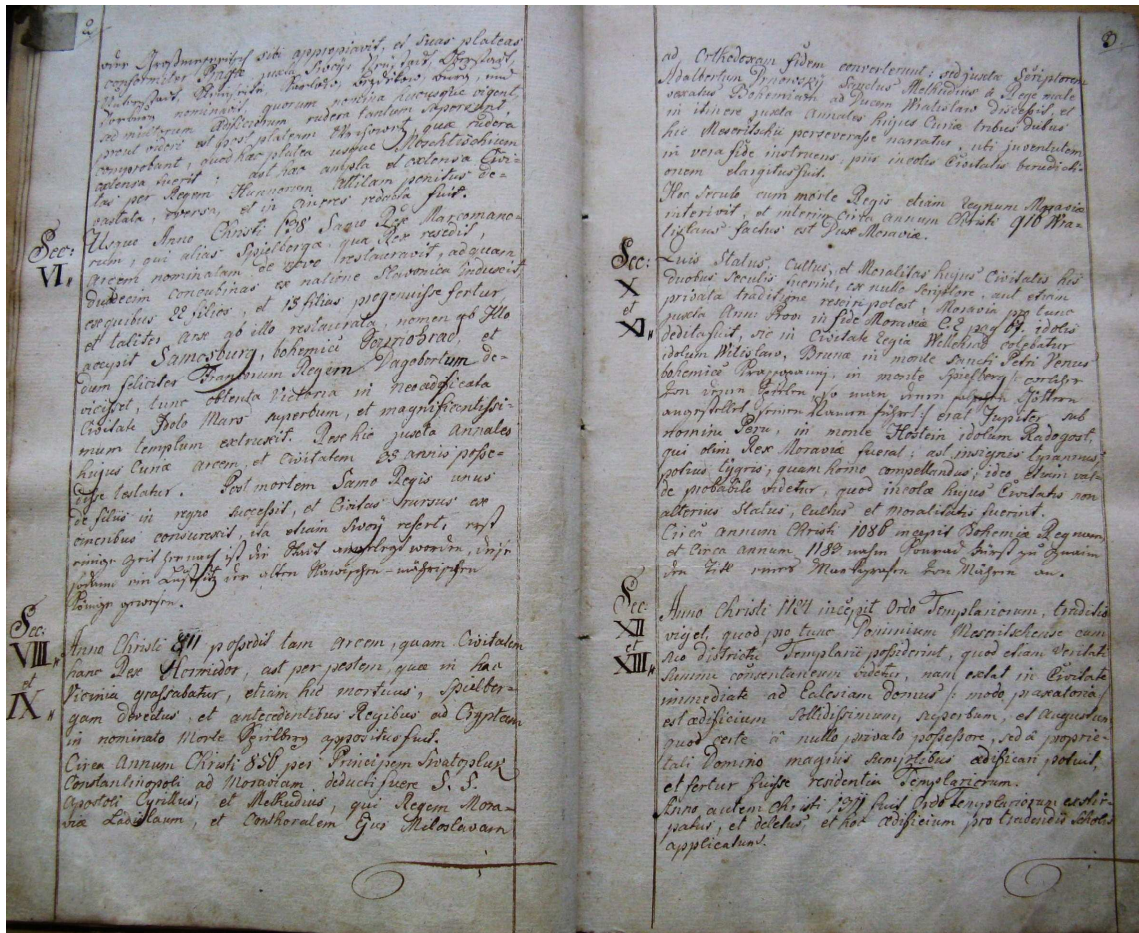 2.
oder Großmeseritsch sibi appropiavit, et suas plateas
conformiter Pragæ juxta
Altenstatt,
nominavit, quorum nomina hucusque vigent,
ad minimum ædificiorum rudera tantum
prout videri est per plateam quæ rudera
comprobant, quod hac platea usque
extensa fuerit; ast hac ampla et extensa Civi-
tas per Regem Hunnorum Attilam penitus de-
vastata, eversa, et in cineres redacta fuit.
Sec:
VI.
Usque Anno Christi Samo Rex Marcomano-
rum, qui alias Spielbergæ qua Rex resedit,
arcem nominatam de novo restauravit, ad quam
duodecim concubinas ex natione Slavonica induxit
ex quibus 22 filios, et 15 filias progenuisse fertur
et taliter arx ab illo restaurata nomen ab Illo
accepit Samosburg, bohemice et
dum feliciter Francorum Regem Dagobertum de-
vicisset, tunc obtenta Victoria in neoædificata
Civitate Idolo Mars superbum, et magnificentissi-
mum templum extruxit. Rex hic juxta Annales
hujus Curiæ arcem et Civitatem annis posse-
disse testatur. Post mortem Samo Regis unus
de filiis in regno successit, et Civitas rursus ex
cineribus consurexit, ita etiam refert, erst
einige Zeit hernach ist die Statt angelegt worden, diese
sodann ein der alten Slawischen-mährischen
Könige gewesen.
Sec:
VIII.
et
IX.
Anno Christi 811 possedit tam arcem, quam Civitatem
hanc Rex Hormidor, ast per pestem, quæ in hac
Vicinia grassabatur, etiam hic mortuus, Spielber-
gam devectus, et antecedentibus Regibus ad Cryptam
in nominato Monte Spielberg appositus fuit.
Circa annum Christi 856 per Principem Swatopluk
Constantinopoli ad Moraviam deducti fuere S. S.
Apostoli Cyrillus, et Methudius, qui Regem Mora-
viæ Ladislaum, et Conthoralem Ejus Miloslavam
3.
ad Orthodoxam fidem converterunt; sed juxta Scriptorem
Adalbertum Sanctus Methudius à Rege male
vexatus Bohemiam ad Ducem Wratislaw discessit, et
in itinere juxta Annales hujus Curiæ tribus diebus
hic Meseritschii perseverasse narratur, uti juventutem
in vera fide instruens, piis incolis Civitatis benedicti-
onem elargitus fuit.
Hoc Seculo cum morte Regis etiam regnum Moraviæ
interivit, et interim circa annum Christi 916 Wra-
tislaus factus est Dux Moraviæ.
Sec:
X
et
XI.
Quis Status, Cultus, et Moralitas hujus Civitatis his
duobus Seculis fuerint, ex nullo Scriptore, aut etiam
privata traditione resciri potest, Moravia pro tunc
juxta in fide Moravia pag 67. idolis
dedita fuit, sic in Civitate regia Wellehrad colebatur
idolum Witislaw, Brunæ in monte Sancti Petri Venus
bohemice in monte Spielberg
von denen wo man denen Göttern
angestellet ihren Namen führet erat Jupiter sub
nomine Peru, in monte Hostein idolum Radogost,
qui olim Rex Moraviæ fuerat; ast insignis tyrannus
potius tygris, quam homo compellandus; ideo etiam val-
de probabile videtur, quod incolæ hujus Civitatis non
alterius Status, Cultus et moralitatis fuerint.
Circa annum Christi 1086 incepit Bohemiæ Regnum,
et circa annum 1182 nahm Conrad Fürst zu Znaim
den Titl eines Marckgrafen von Mähren an.
Sec:
XII
et
XIII.
Anno Christi 1124 incepit Ordo Templariorum, traditio
viget, quod pro tunc Dominium Meseritschense cum
suo districtu Templarii possiderint, quod etiam veritati
summe consentaneum videtur, nam extat in Civitate
immediate ad Eclesiam domus
est ædificium sollidissimum, superbum, et augustum
quod certe à nullo privato possessore, sed à proprie-
tali Domino magnis sumptibus ædificari potuit,
et fertur fuisse residentia Templariorum.
Anno autem Christi 1311 fuit Ordo templariorum exstir-
patus, et deletus, et hoc ædificium pro tradendis scholis
applicatum.